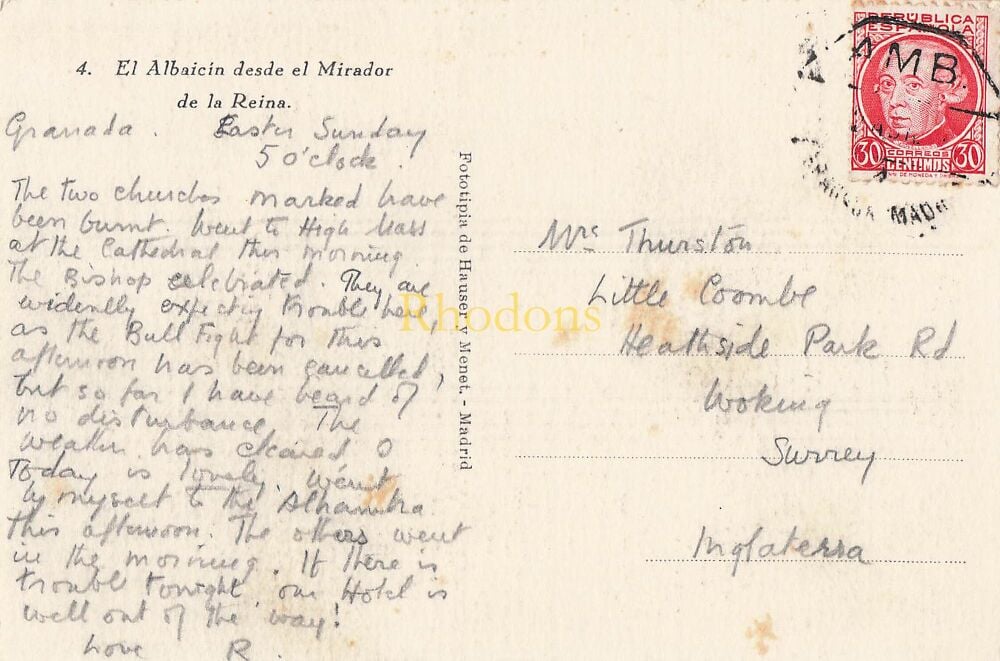 4. El Albaicín desde el Mirador
de la Reina.
Granada. Easter Sunday
5 o'clock.
The two churches marked have
been burnt. Went to High Mass
at the Cathedral this morning.
The Bishop celebrated. They are
evidently expecting trouble here,
as the Bull Fight for this
afternoon has been cancelled,
but so far I have heard of
no disturbance. The
weather has cleared &
Today is lovely. Went
by myself to the Alhambra
this afternoon. The others went
in the morning. If there is
trouble tonight, our Hotel is
well out of the way!
Love R.
Fototipia de Hauser y Menet. - Madrid
REPÚBLICA
ESPAÑOLA
30 CORREOS 30
CENTIMOS
AMB
MADR
Mrs Thurston
Little Coombe
Heathside Park Rd
Woking
Surrey
Inglaterra
Rhodons